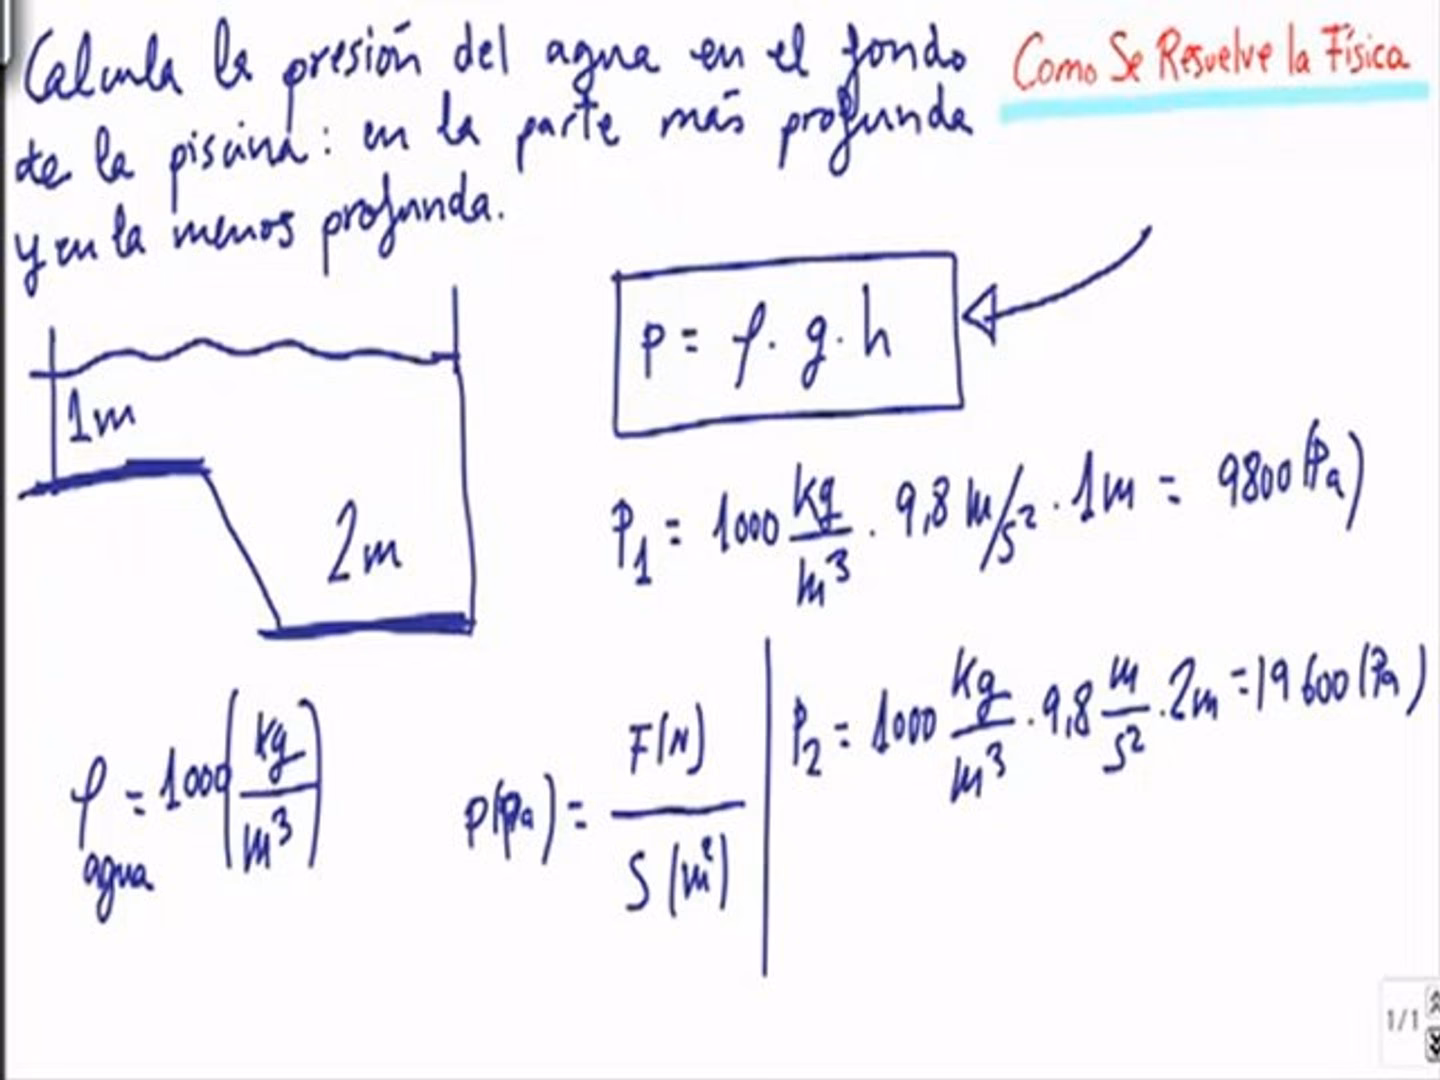 Calcula la presión del agua en el fondo
de la piscina: en la parte más profunda
y en la menos profunda.
Como Se Resuelve la Física
1m
2m
p = ρ · g · h
P₁ = 1000 kg/m³ · 9,8 m/s² · 1m = 9800 (Pa)
P₂ = 1000 kg/m³ · 9,8 m/s² · 2m = 19600 (Pa)
ρ agua = 1000 (kg/m³)
p(Pa) = F(N)/S(m²)
1/1